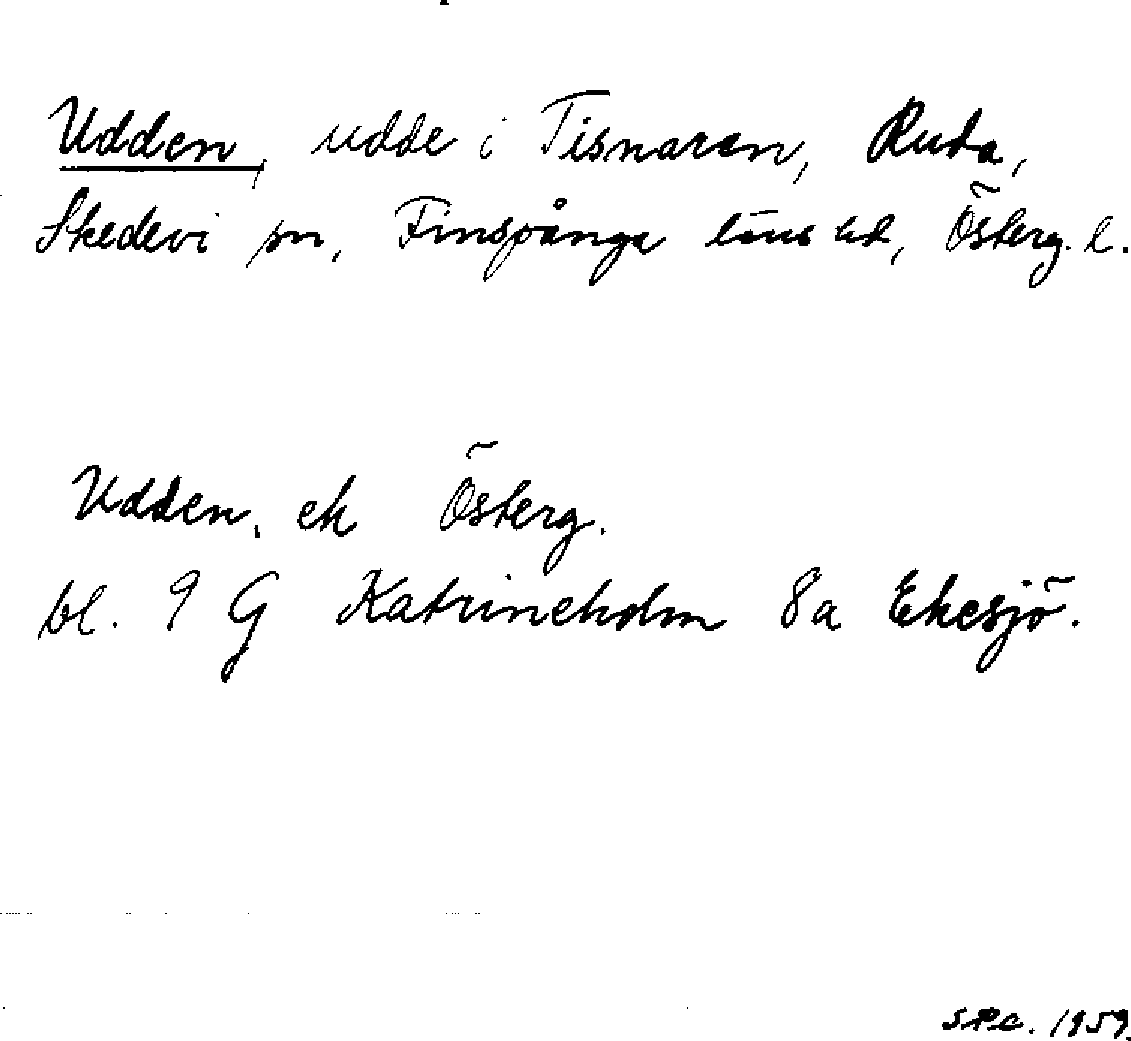 Udden, udde i Tisnaren, Ruda,
Skedevi sn, Finspånga läns hd, Österg. l.
Udden, ek Österg.
bl. 9 G Katrineholm 8a Ekesjö.
1959.